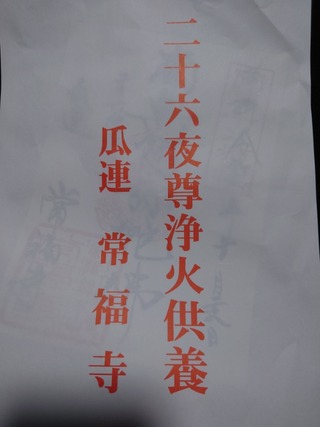 二十六夜尊浄火供養
瓜連 常福寺